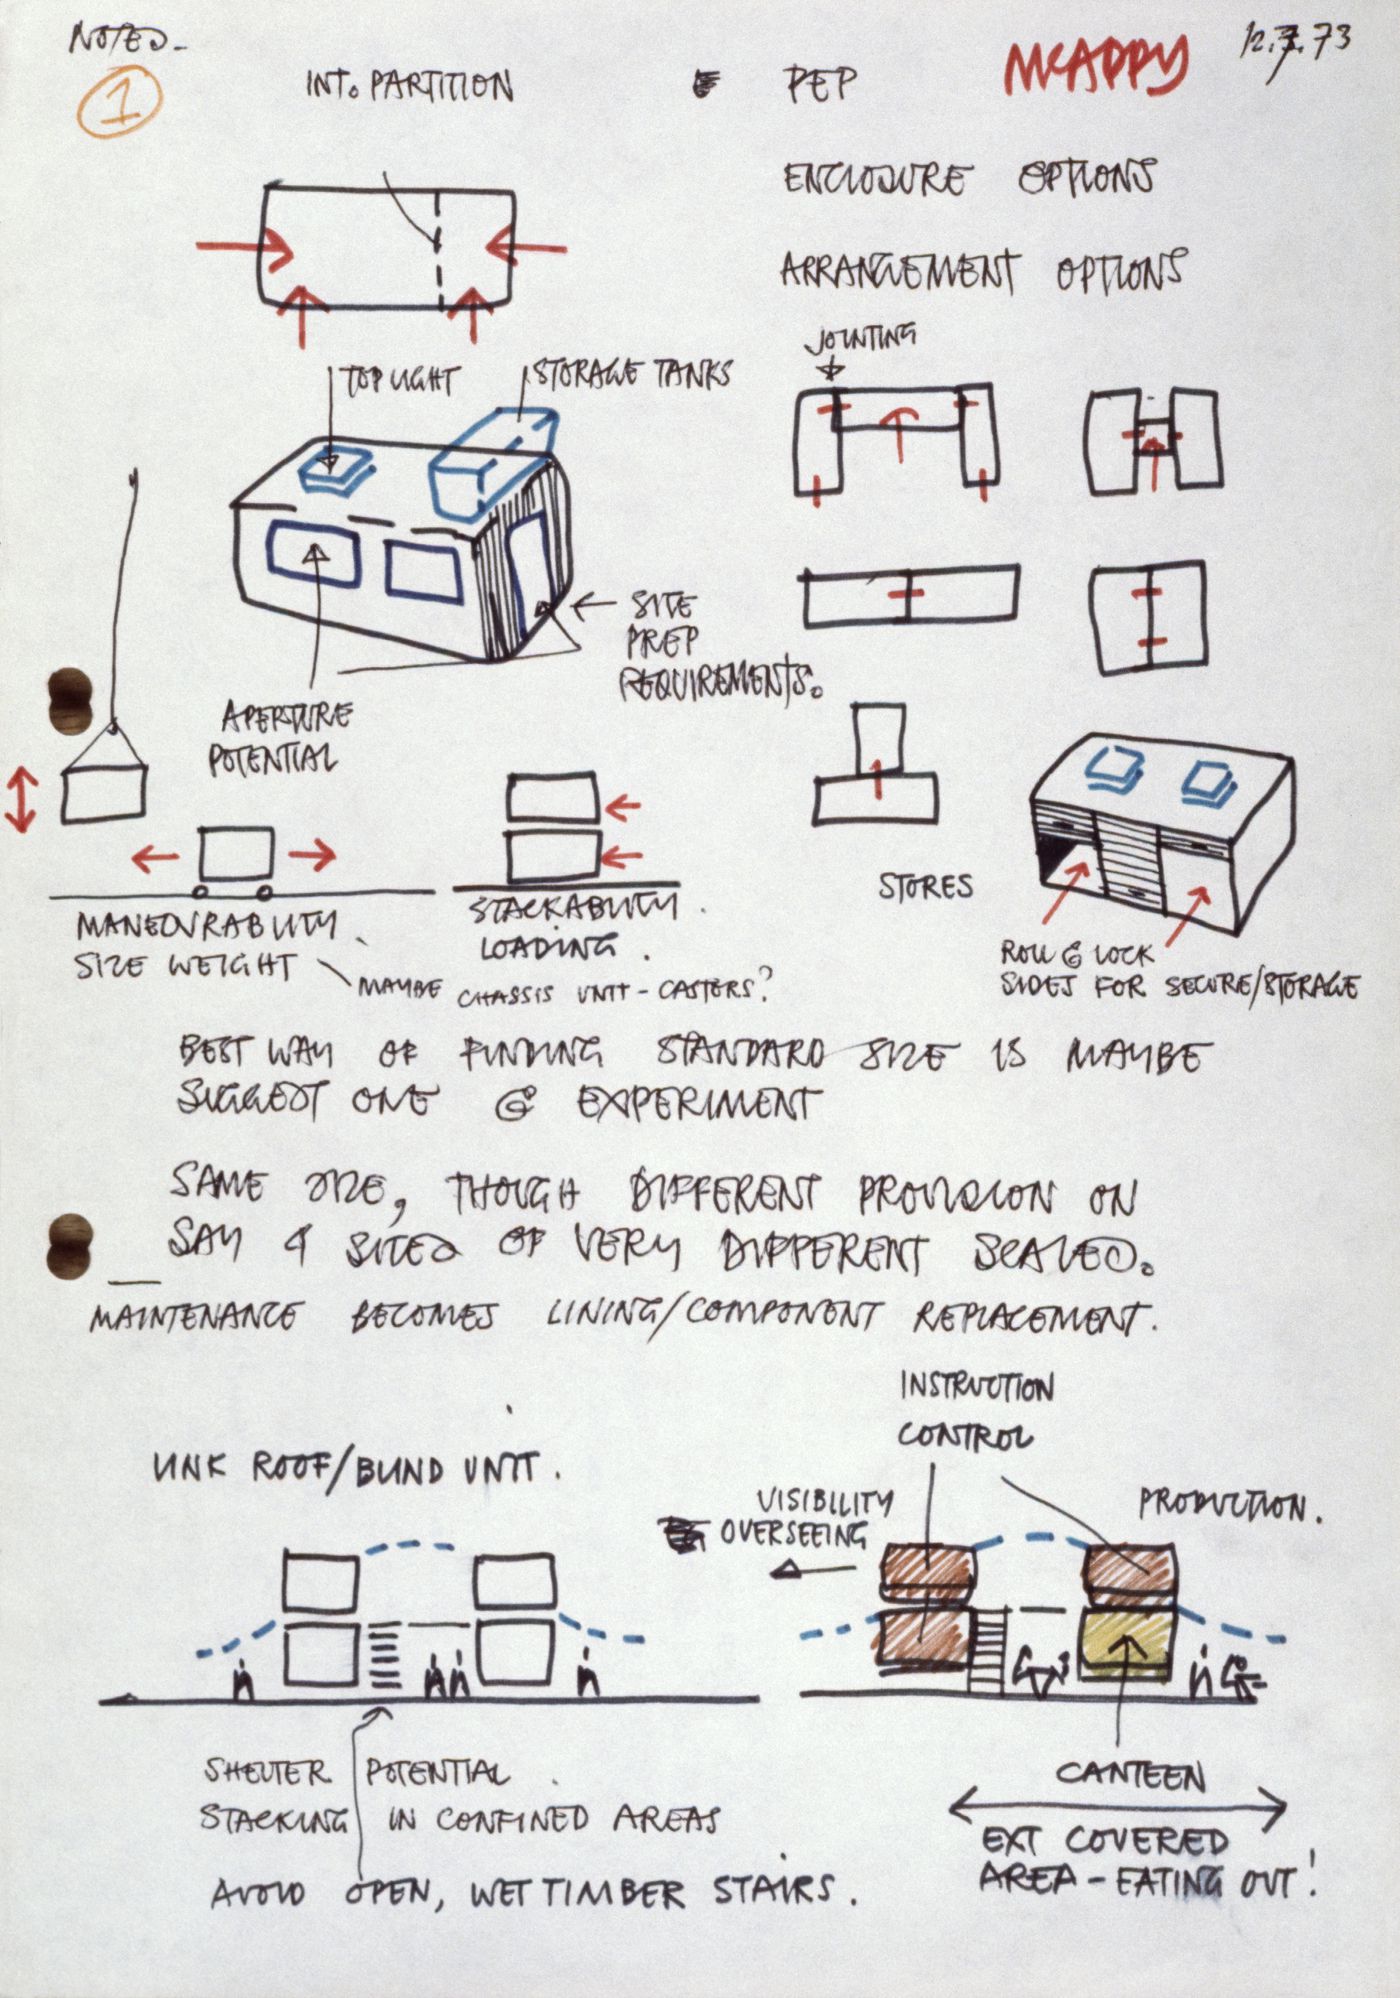 NOTED-
1
INT. PARTITION
PEP
McAPPY
ENCLOSURE OPTIONS
ARRANGEMENT OPTIONS
JOINTING
TOP LIGHT
STORAGE TANKS
SITE
PREP
REQUIREMENTS.
APERTURE
POTENTIAL
STORES
ROLL & LOCK
SIDES FOR SECURE/STORAGE
MANEOVRABILITY
SIZE WEIGHT
MAYBE CHASSIS UNIT - CASTERS?
STACKABILITY.
LOADING.
BEST WAY OF FINDING STANDARD SIZE IS MAYBE
SUGGEST ONE & EXPERIMENT
SAME SIZE, THOUGH DIFFERENT PROVISION ON
SAY 4 SITES OF VERY DIFFERENT SCALES.
MAINTENANCE BECOMES LINING/COMPONENT REPLACEMENT.
INSTRUCTION
CONTROL
LINK ROOF/BLIND UNIT.
VISIBILITY
OVERSEEING
PRODUCTION.
SHELTER POTENTIAL.
STACKING IN CONFINED AREAS
AVOID OPEN, WET TIMBER STAIRS.
CANTEEN
EXT COVERED
AREA - EATING OUT!